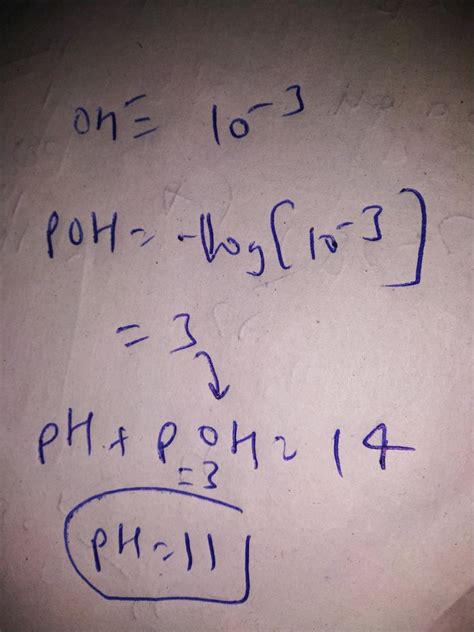 OH⁻ = 10⁻³
pOH = -log[10⁻³]
= 3
pH + pOH = 14
= 3
pH = 11